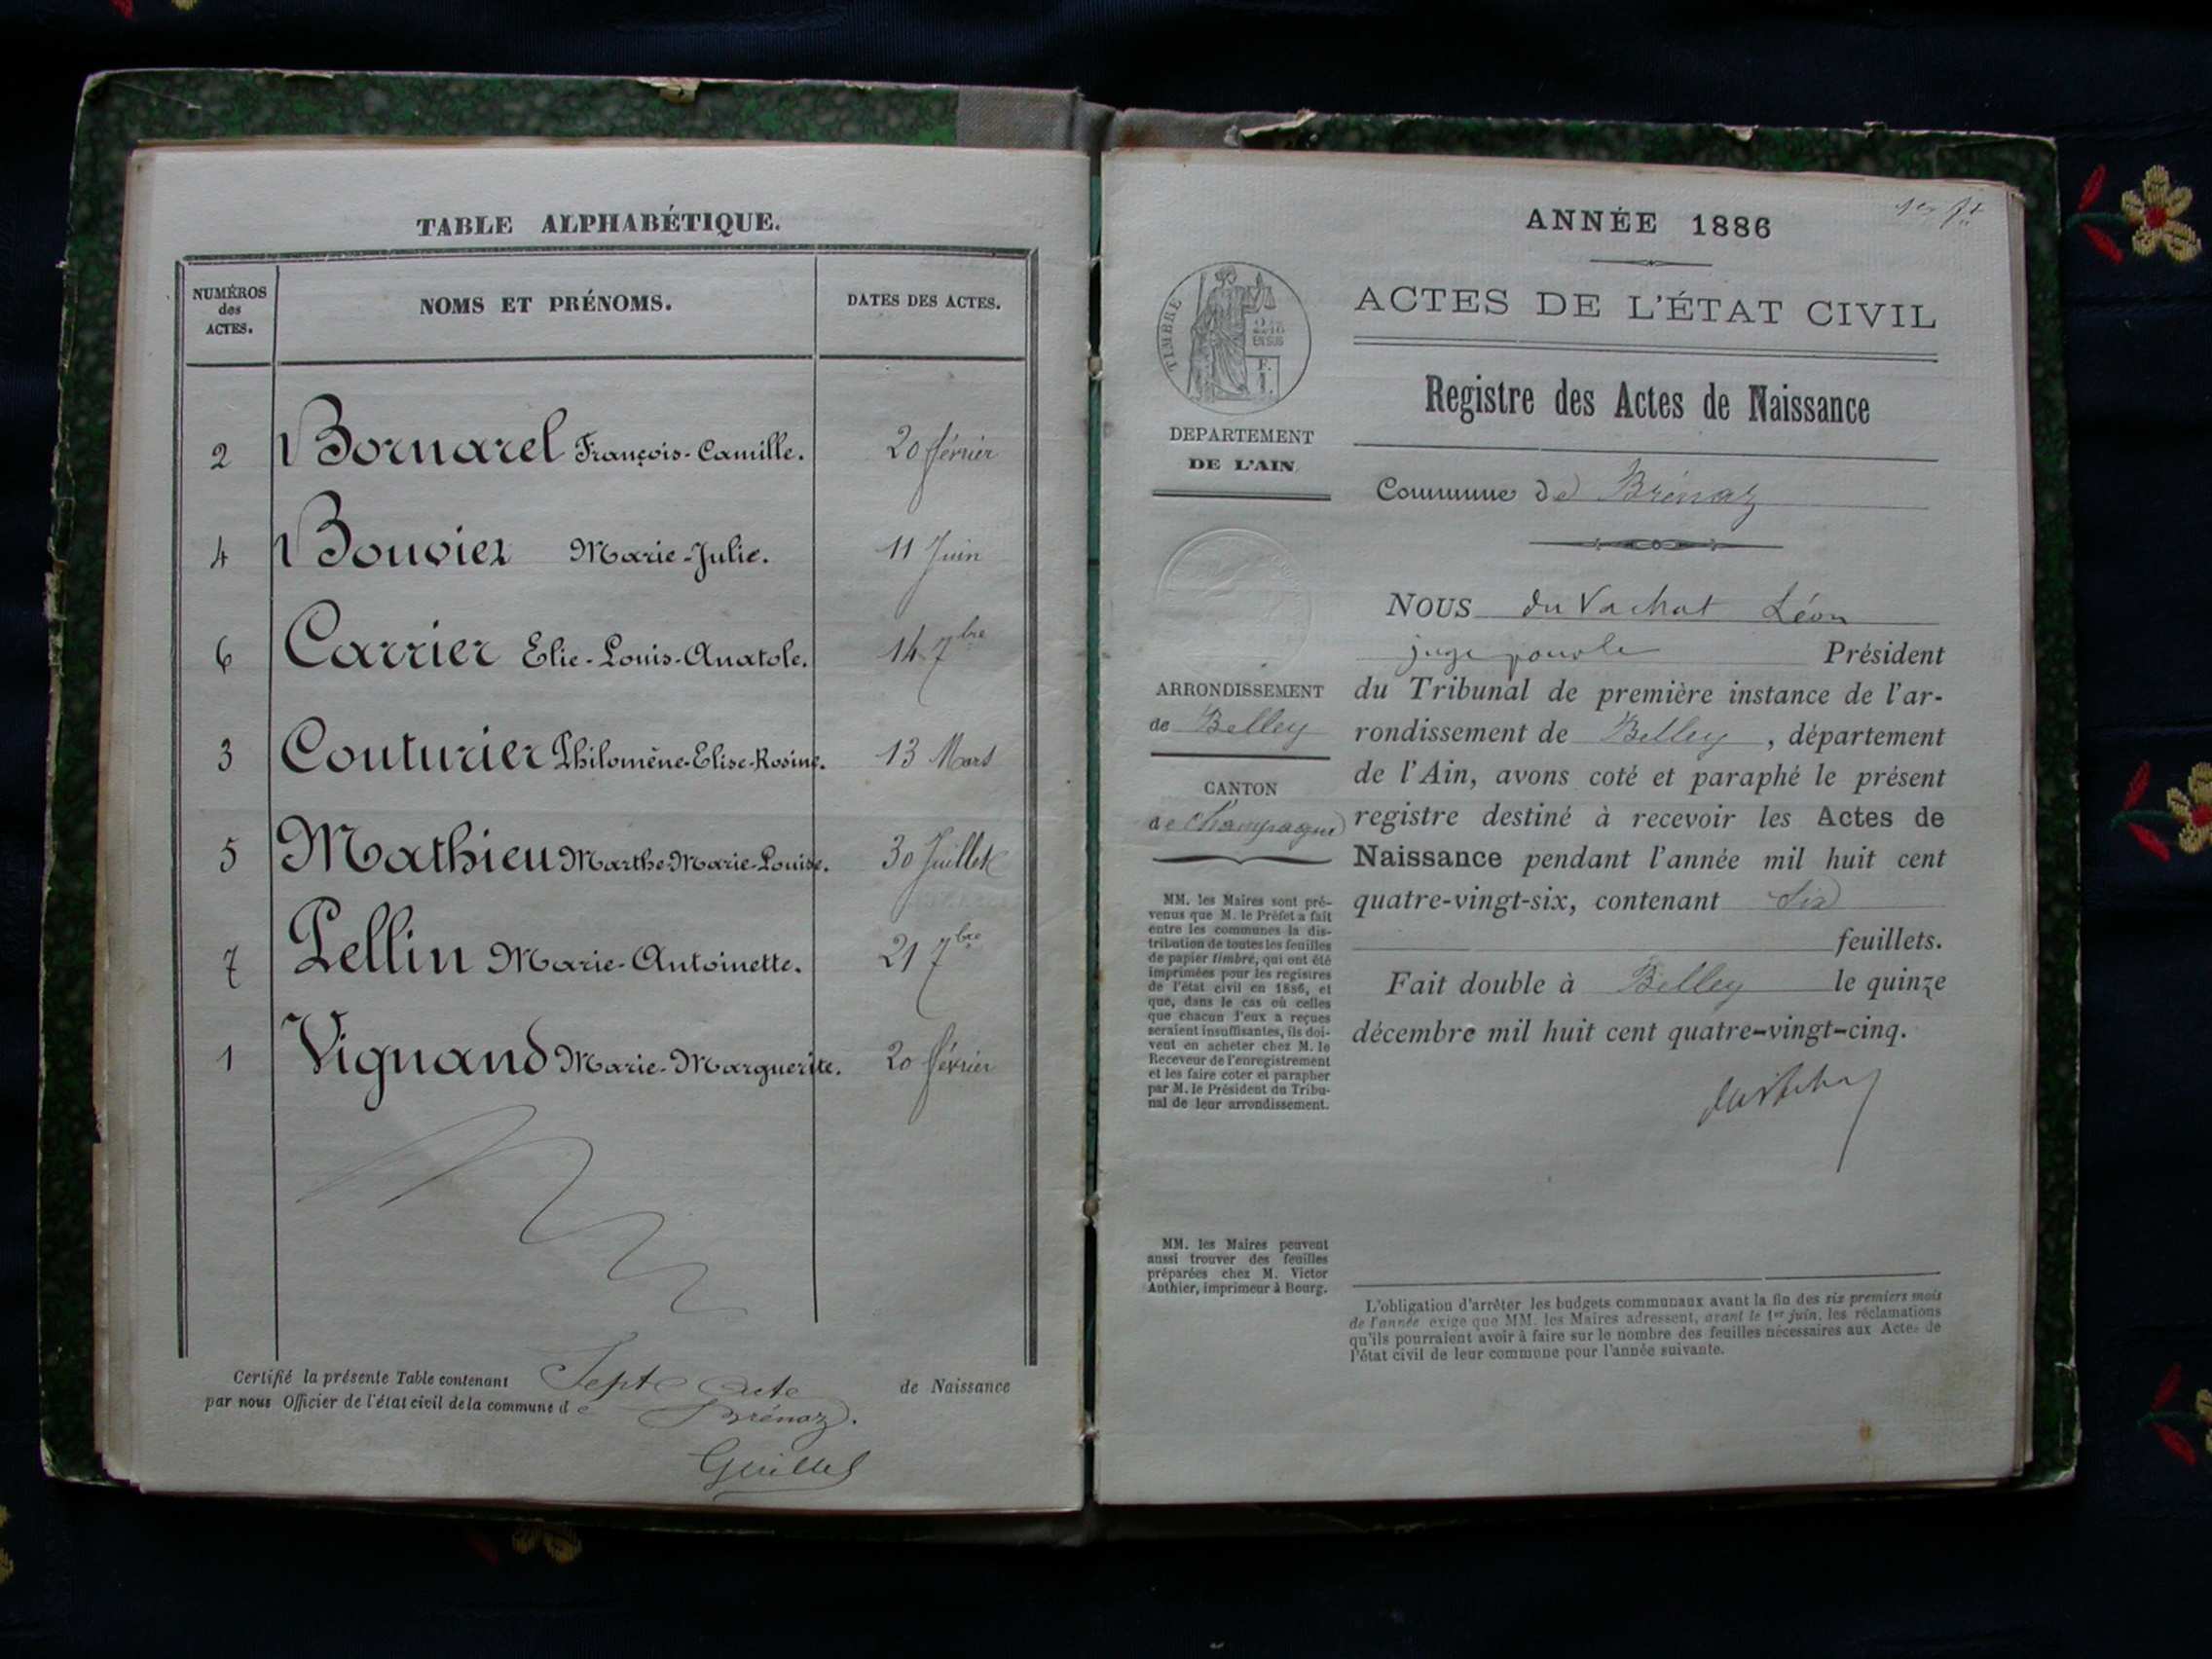 TABLE ALPHABÉTIQUE.
NUMÉROS
des
ACTES.
NOMS ET PRÉNOMS.
DATES DES ACTES.
2 Bornarel François-Camille. 20 février
4 Bouvier Marie-Julie. 11 Juin
6 Carrier Elie-Louis-Anatole. 14 7bre
3 Couturier Philomène-Elise-Rosine. 13 Mars
5 Mathieu Marthe-Marie-Louise. 30 Juillet
7 Pellin Marie-Antoinette. 21 7bre
1 Vignand Marie-Marguerite. 20 février
Certifié la présente Table contenant Sept acte de Naissance
par nous Officier de l'état civil de la commune de Brénaz.
ANNÉE 1886
TIMBRE
EN SUS
ACTES DE L'ÉTAT CIVIL
Registre des Actes de Naissance
DEPARTEMENT
DE L'AIN
Commune de Brénaz
ARRONDISSEMENT
de Belley
CANTON
de Champagne
MM. les Maires sont pré-
venus que M. le Préfet a fait
entre les communes la dis-
tribution de toutes les feuilles
de papier timbré, qui ont été
imprimées pour les registres
de l'état civil en 1886, et
que, dans le cas où celles
que chacun d'eux a reçues
seraient insuffisantes, ils doi-
vent en acheter chez M. le
Receveur de l'enregistrement
et les faire coter et parapher
par M. le Président du Tribu-
nal de leur arrondissement.
MM. les Maires peuvent
aussi trouver des feuilles
préparées chez M. Victor
Authier, imprimeur à Bourg.
NOUS du Vachat Léon
juge pour le Président
du Tribunal de première instance de l'ar-
rondissement de Belley, département
de l'Ain, avons coté et paraphé le présent
registre destiné à recevoir les Actes de
Naissance pendant l'année mil huit cent
quatre-vingt-six, contenant Six
feuillets.
Fait double à Belley le quinze
décembre mil huit cent quatre-vingt-cinq.
L'obligation d'arrêter les budgets communaux avant la fin des six premiers mois
de l'année exige que MM. les Maires adressent, avant le 1er juin, les réclamations
qu'ils pourraient avoir à faire sur le nombre des feuilles nécessaires aux Actes de
l'état civil de leur commune pour l'année suivante.